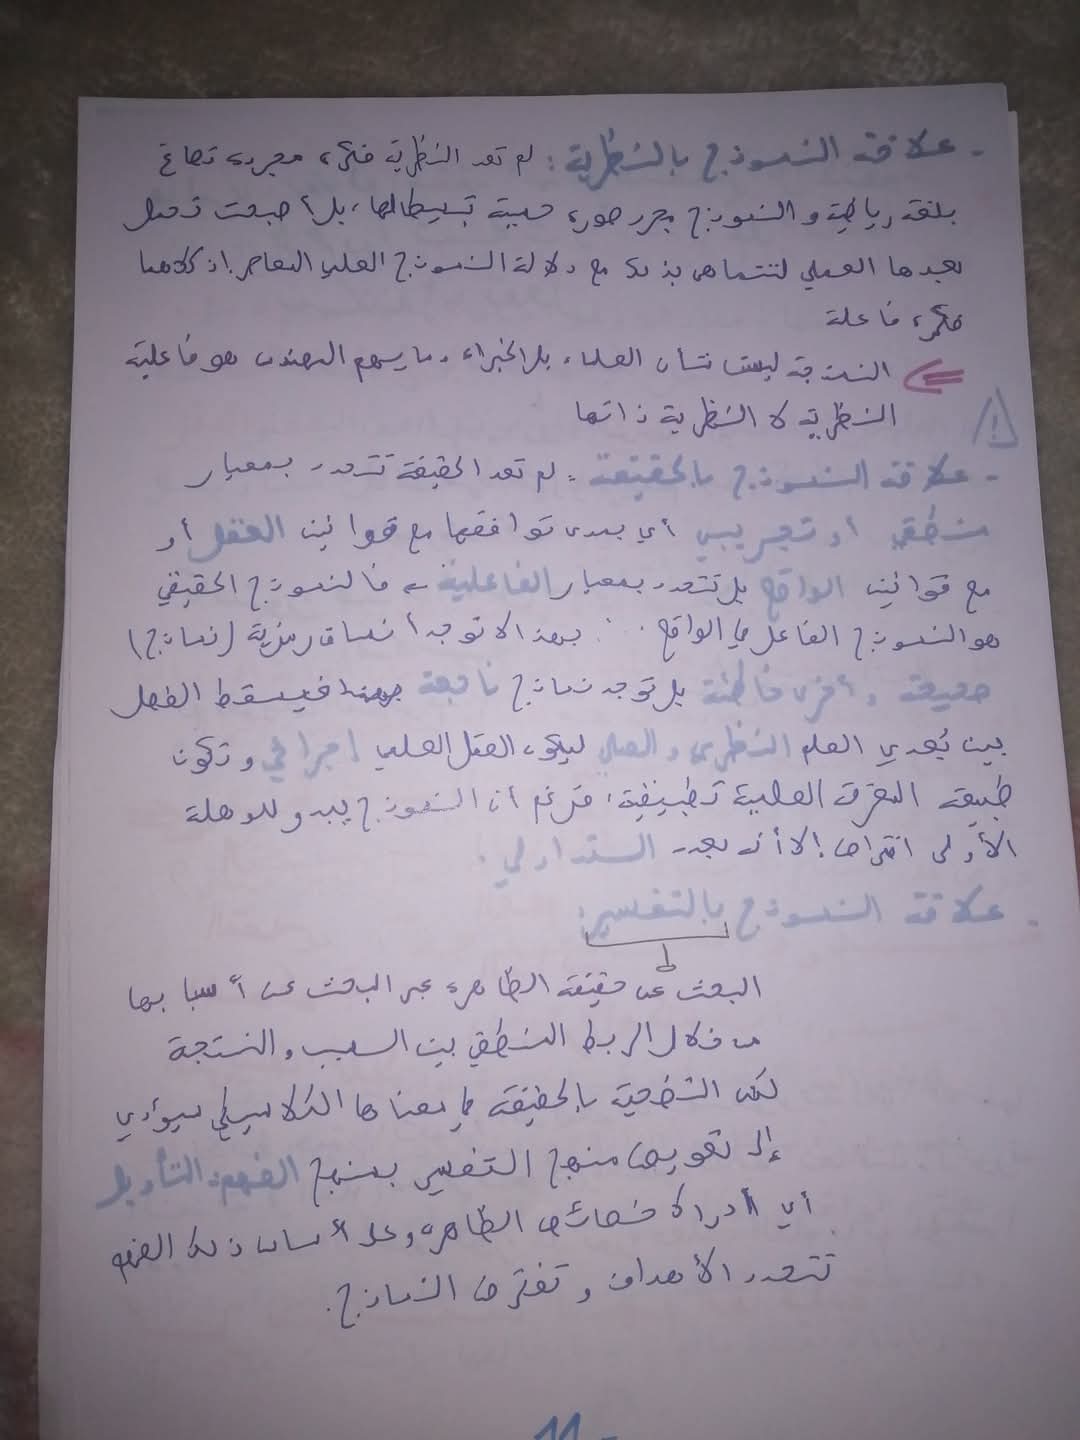 - علاقة النموذج بالنظرية: لم تعد النظرية فكرة مجردة تصاغ
بلغة رياضية و النموذج مجرد صورة حسية تبسيط لها، بل أصبحت تحمل
بعدها العملي لتتماهى بذلك مع دلالة النموذج العلمي المعاصر إذ كلاهما
فكرة فاعلة
النمذجة ليست شأن العلماء بل الخبراء و ما يهم المهندس هو فاعلية
النظرية لا النظرية ذاتها
- علاقة النموذج بالحقيقة: لم تعد الحقيقة تتحدد بمعيار
منطقي أو تجريبي أي بمدى توافقها مع قوانين العقل أو
مع قوانين الواقع بل تتحدد بمعيار الفاعلية فالنموذج الحقيقي
هو النموذج الفاعل في الواقع ∴ بهذا لا توجد أنساق رمزية (نماذج)
صحيحة و أخرى خاطئة بل توجد نماذج ناجعة فيسقط الفصل
بين بُعدي العلم النظري و العملي ليكون العقل العلمي إجرائي و تكون
طبيعة المعرفة العلمية تطبيقية، فرغم أن النموذج يبدو للوهلة
الأولى افتراضا إلا أنه بعده التداولي.
- علاقة النموذج بالتفسير:
البحث عن حقيقة الظاهرة عبر البحث عن أسبابها
من خلال الربط المنطقي بين السبب و النتيجة
لكن التضحية بالحقيقة في معناها الكلاسيكي سيؤدي
إلى تعويض منهج التفسير بمنهج الفهم: التأويل
أي إدراك خصائص الظاهرة و على أساس ذلك الفهم
تتحدد الأهداف و تفترض النماذج.
11 -